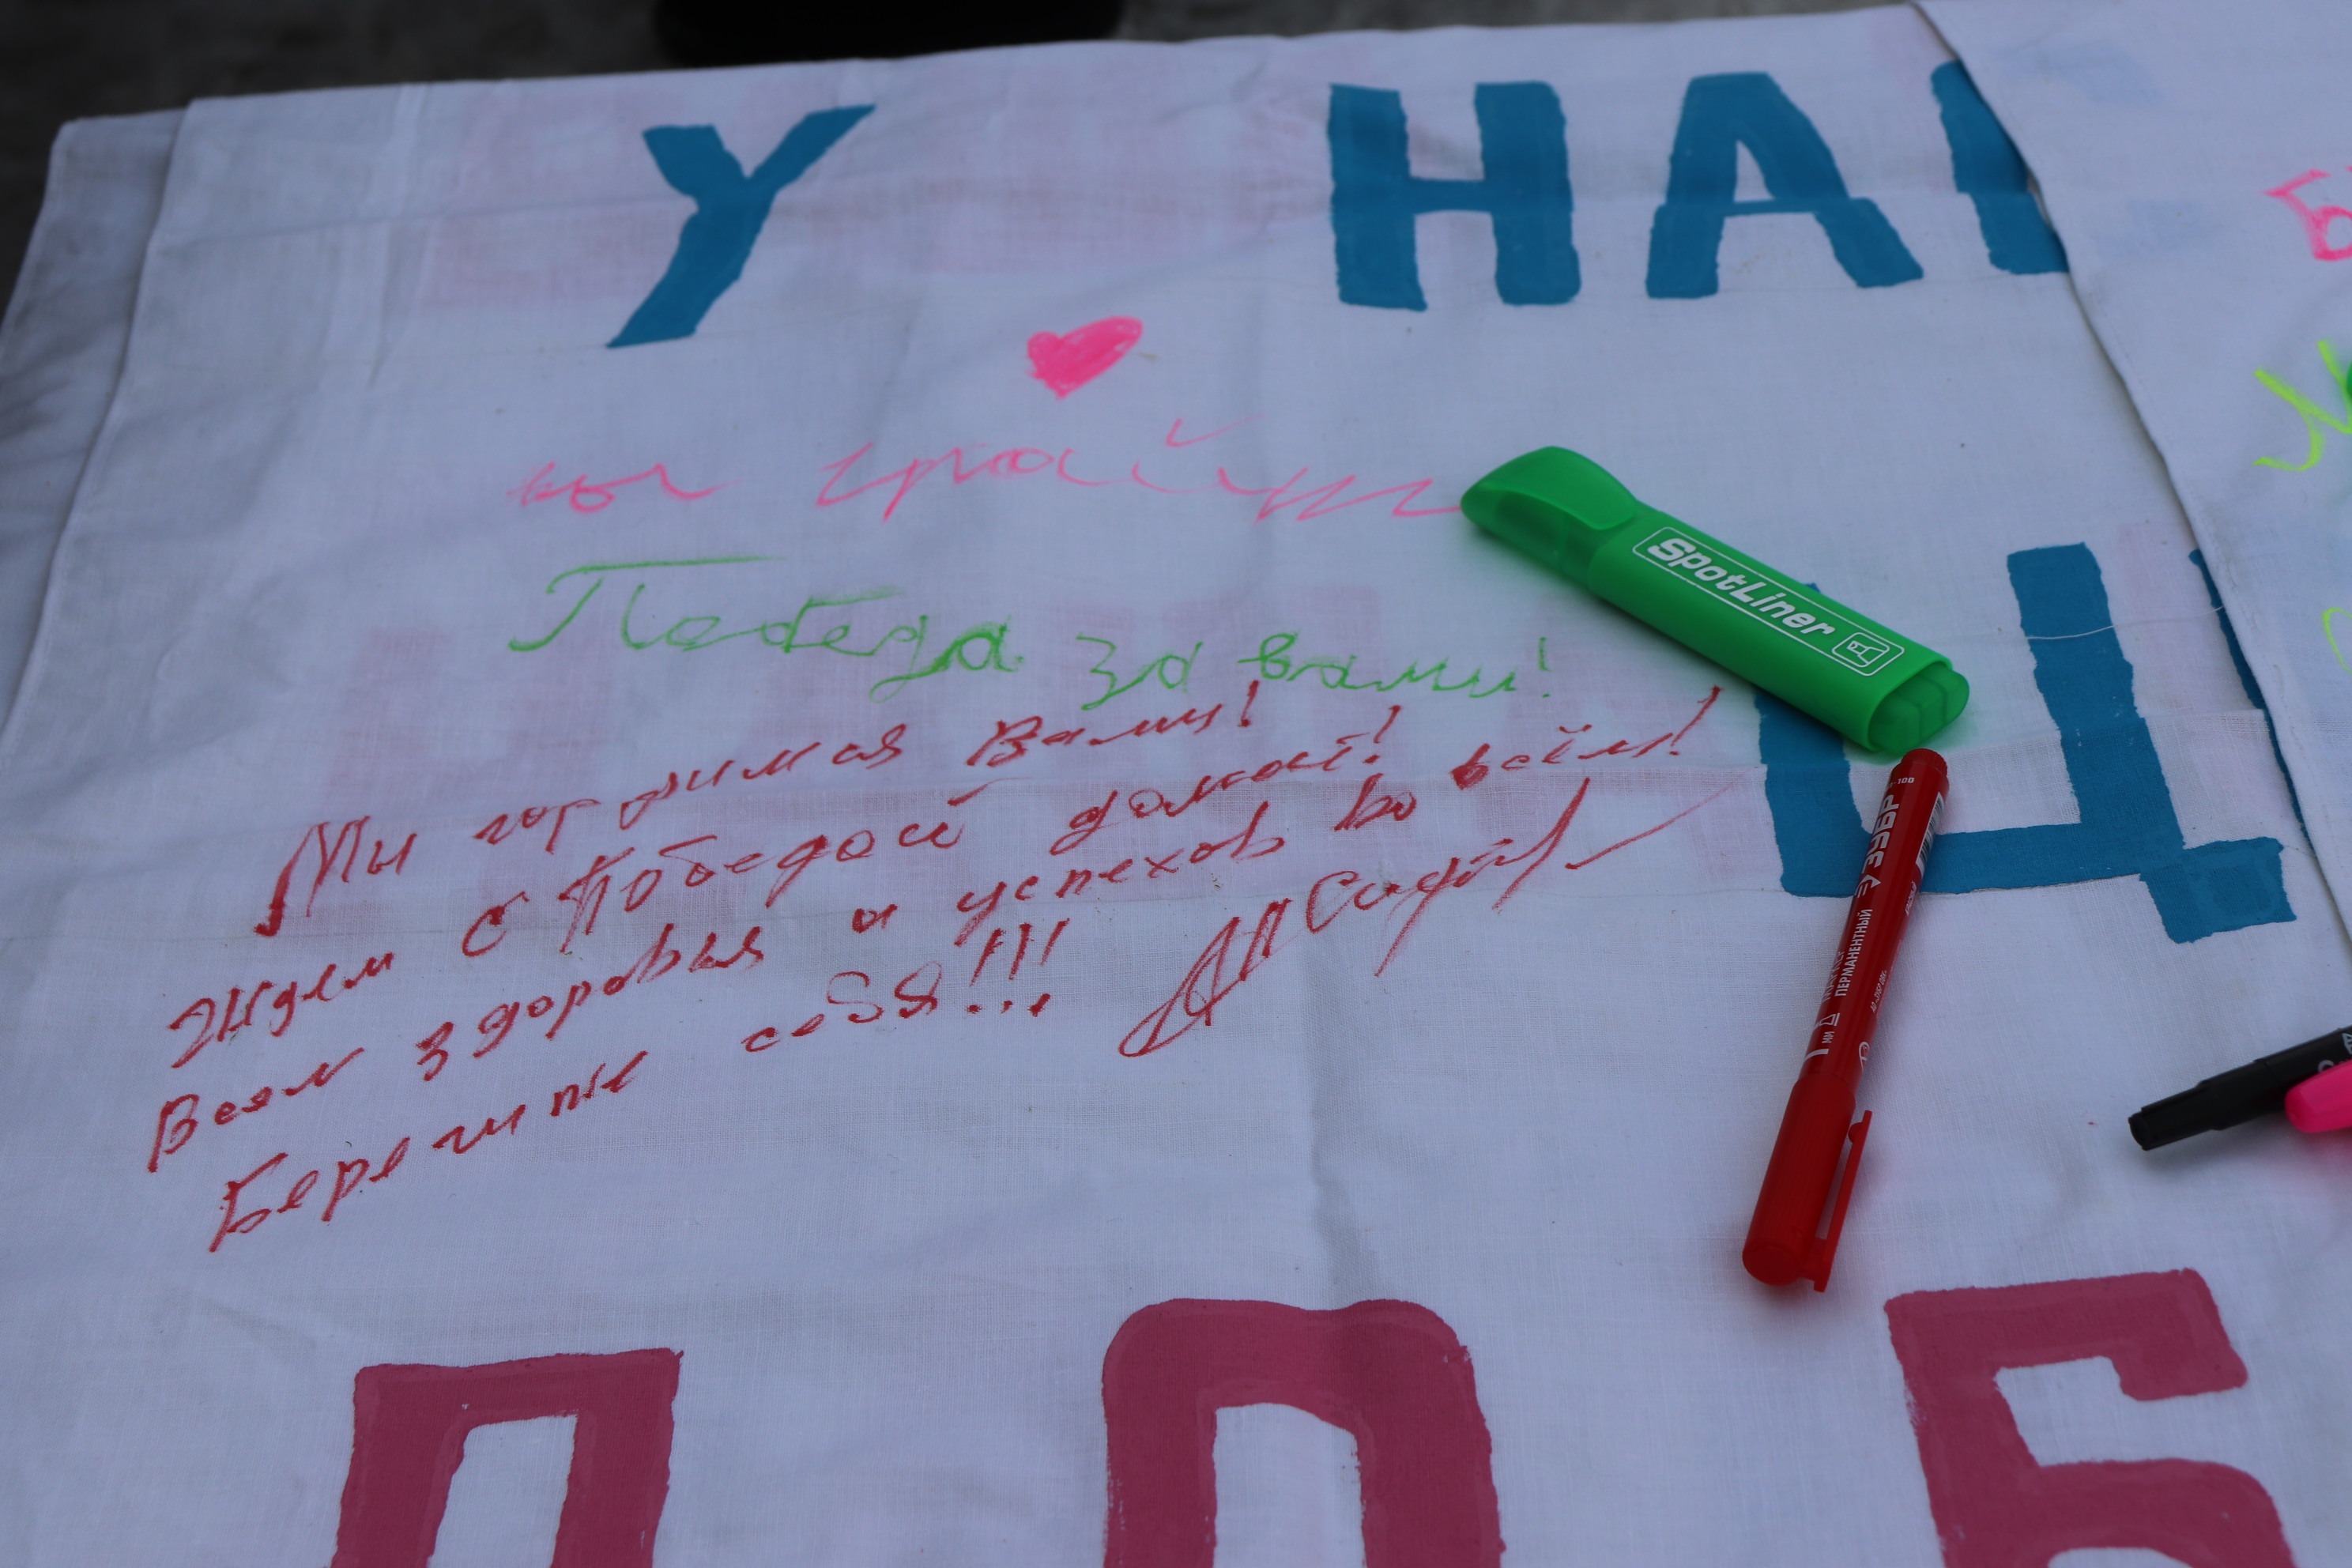 У НА
вы
Победа за вами!
Мы гордимся Вами!
Ждем с Победой домой!
Всем здоровья и успехов во всём!
Берегите себя!!!
SpotLiner
Ц
ЗУБР
ПЕРМАНЕНТНЫЙ
П О Б